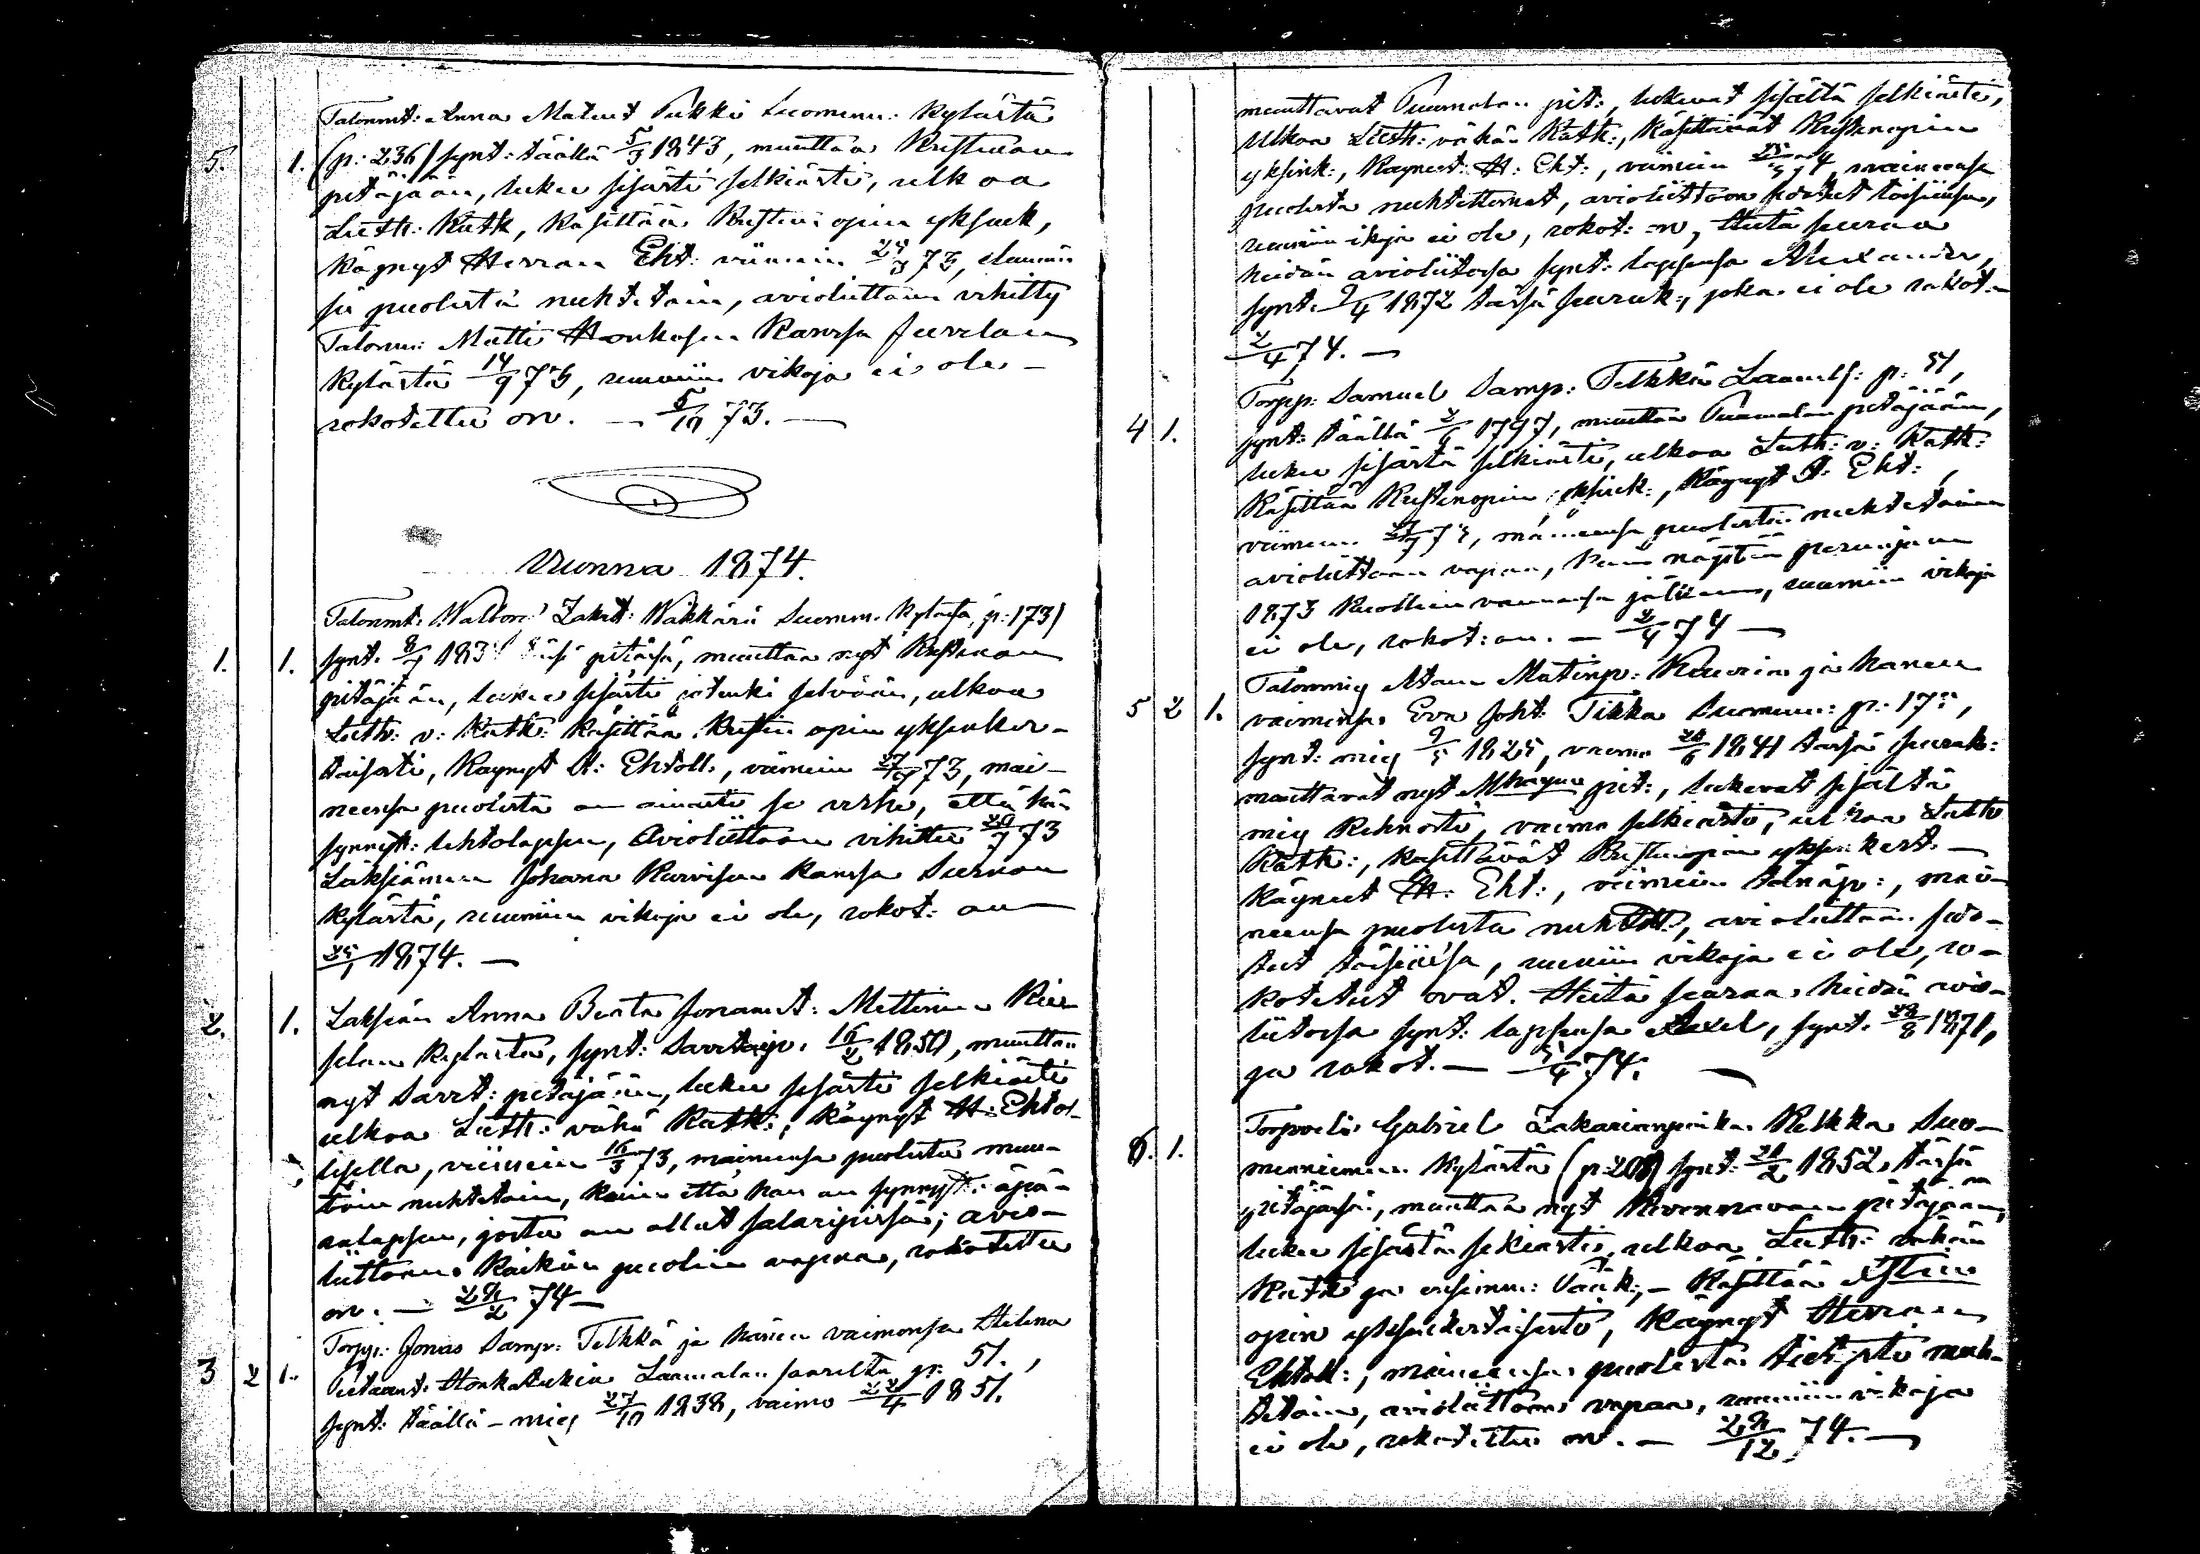 Talonmt: Anna Matint Pukki Suomenn: kylästä
5. 1. (p: 236) synt: täällä 5/3 1843, muuttaa Kristiinan
pitäjään, lukee sisästä selkiästi, ulkoa
Luth: Katk, käsittää Kristin opin yksink,
käynyt Herran Eht: viimein 24/3 73, elämän
sä puolesta nuhteetoin, avioliittoon vihitty
Talonm: Matti Honkasen kanssa Juvolan
kylästä 14/9 73, ruumiin vikoja ei ole –
rokotettu on. — 5/10 73. —
Vuonna 1874.
Talonmt: Zakrt: Wäkkärä Suomm. kylästä, p: 173)
1. 1. synt. pitäjässä, muuttaa nyt
pitäjään, lukee sisästä jotenki selvään, ulkoa
Luth: v: Katk: käsittää Kristin opin yksinker-
taisesti, käynyt H: Ehtoll:, viimein 73, mai-
neensa puolesta on ainoasti se virhe, että hän
synnytt: lehtolapsen, avioliittoon vihittu 73
Läksiämen Johana Karvisen kanssa
kylästä, ruumiin vikoja ei ole, rokot: on
1874. —
2. 1. Läksiän Anna Berta Mettinen Kie-
selän kylästä, synt: 16/2 1850, muuttaa
nyt Savit: pitäjään, lukee sisästä selkiästi
ulkoa Luth: vähä Katk:, käynyt H: Ehtol-
lisella, viimein 16/3 73, maineensa puolesta muu-
toin nuhtetoin, kuin että hän on synnyt: äpä-
rälapsen, josta on ollut salaripissä; avio-
liittoon kaikin puolin vapaa, rokotettu
on. — 28/2 74 —
Torpp: Jonas Samp: Telkkä ja hänen vaimonsa Helena
3 2 1. Laamalan saarelta p: 51.,
synt: täällä – mies 27/10 1838, vaimo 22/4 1851.
muuttavat Puumalan pit:, lukevat sisältä selkiästi,
ulkoa Luth: vähän Katk:, käsittävät Kristinopin
yksink:, käyneet H: Eht:, viimein maineensa
puolesta nuhtettomat, avioliittoon sidotut toisiinsa,
ruumiin vikoja ei ole, rokot: on, Heitä seuraa
heidän avioliitossa synt: lapsensa Alexander,
synt. 9/4 1872 tässä seurak:, joka ei ole rokot. –
2/4 74. —
Torpp: Samuel Samp: Telkkä Laamals: p: 51,
4 1. synt: täällä 1797, muuttaa Puumalan pitäjään,
lukee sisästä selkiästi, ulkoa Luth: v: Katk:
käsittää Kristinopin yksink:, käynyt H: Eht:,
viimein maineensa puolesta nuhtetoin
avioliittoon vapaa, kuin näytti perunjaon
1873 kuolleen vaimonsa jälkeen, ruumiin vikoja
ei ole, rokot: on. — 2/4 74 —
Talonmies Adam Matinp: Kauria ja hänen
5 2 1. vaimonsa Eva Joht: Tikka Suomenn: p:
synt: mies 1825, vaimo 1841 tässä seurak:
muuttavat nyt pit:, lukevat sisältä
mies kehnosti, vaimo selkiästi, ulkoa Luth
Katk:, käsittävät Kristinopin yksinkert. –
käyneet H: Eht:, viimein mai-
neensa puolesta nuht:, avioliittoon sido-
tut toisiinsa, ruumiin vikoja ei ole, ro-
kotetut ovat. Heitä seuraa heidän avio-
liitossa synt: lapsensa Axel, synt. 1871,
ja rokot. — 74. —
Torpp: Gabriel Zakarianpoika Kelkka Suo-
6. 1. menniemen kylästä (p 208) synt: 1852 tässä
pitäjässä, muuttaa nyt pitäjään,
lukee sisästä selkiästi, ulkoa Luth: vähän
Katk ja ensimm: — käsittää
opin yksinkertaisesti, käynyt Herran
Ehtoll:, maineensa puolesta nuh-
tetoin, avioliittoon vapaa, ruumiin vikoja
ei ole, rokotettu on. — 28/12 74. —